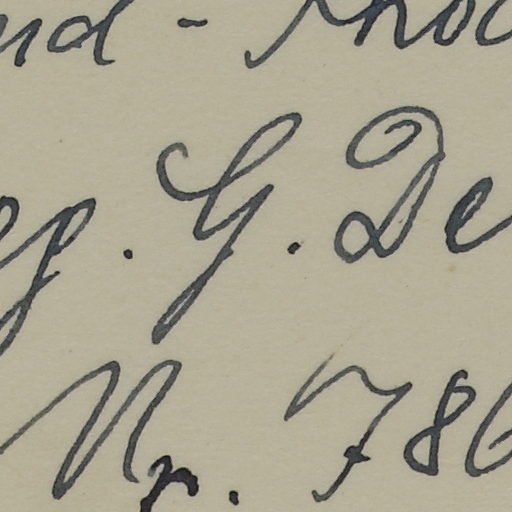 nd - Rho
eg. G. De
Nr. 786